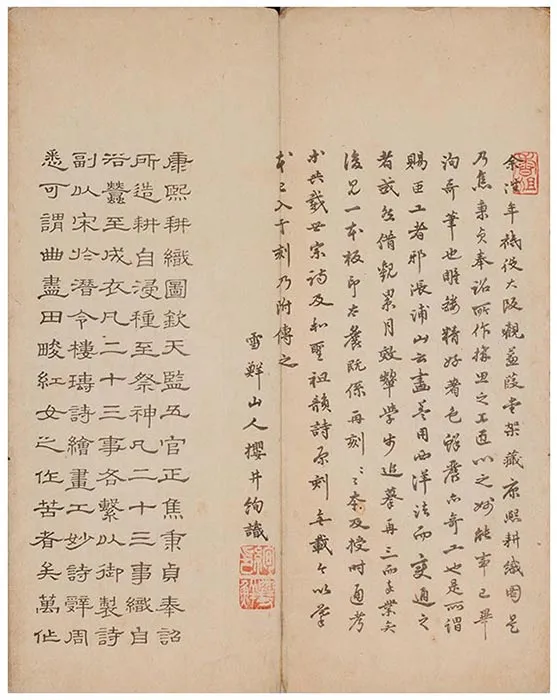 余往年祗役大阪觀蒹葭堂架藏康熙耕織圖是
乃焦秉貞奉詔所作構思之工運以之妙能事已畢
洵奇筆也雕鏤精好著色鮮麗亦奇工也是所謂
賜臣工者邪張浦山云畫蓋用西洋法而變通之
者哉借觀累月效顰學步追摹再三而卒業矣
後見一本板印太麤既係再刻〻〻本及授時通考
共載世宗詩及和聖祖韻詩原刻無載今以學
本已入于刻乃附傳之
雪鮮山人櫻井絢識
康熙耕織圖欽天監五官正焦秉貞奉詔
所造耕自浸種至祭神凡二十三事織自
浴蠶至成衣凡二十三事各繫以御製詩
副以宋於潛令樓璹詩繪畫工妙詩辭周
悉可謂曲盡田畯紅女之作苦者矣萬